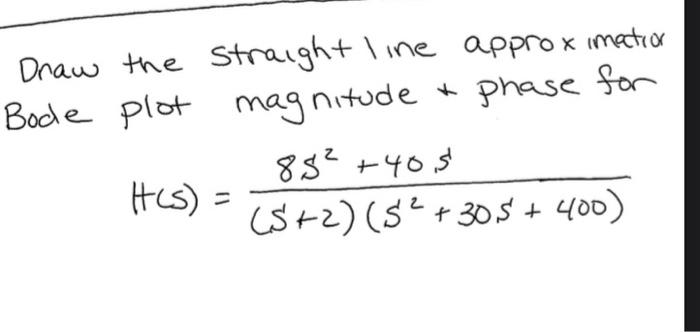 Draw the straight line approximatior
Bode plot magnitude + phase for
H(s) = 8s² + 40s / (s+2)(s² + 30s + 400)